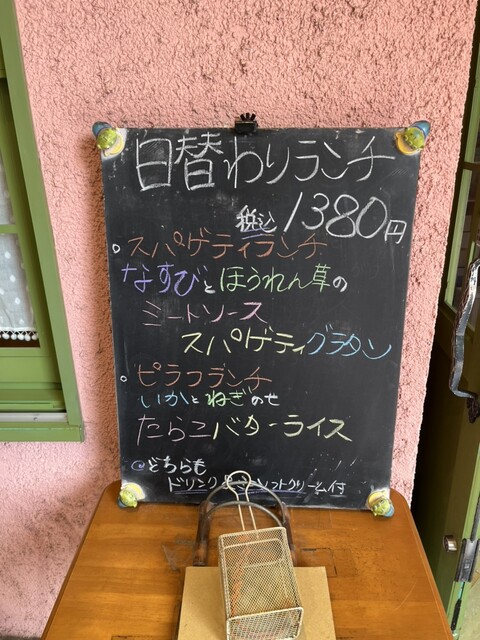 日替わりランチ
税込 1380円
○スパゲティランチ
なすびとほうれん草の
ミートソース
スパゲティグラタン
○ピラフランチ
いかとねぎのせ
たらこバターライス
◎どちらも
ドリンク ソフトクリーム付